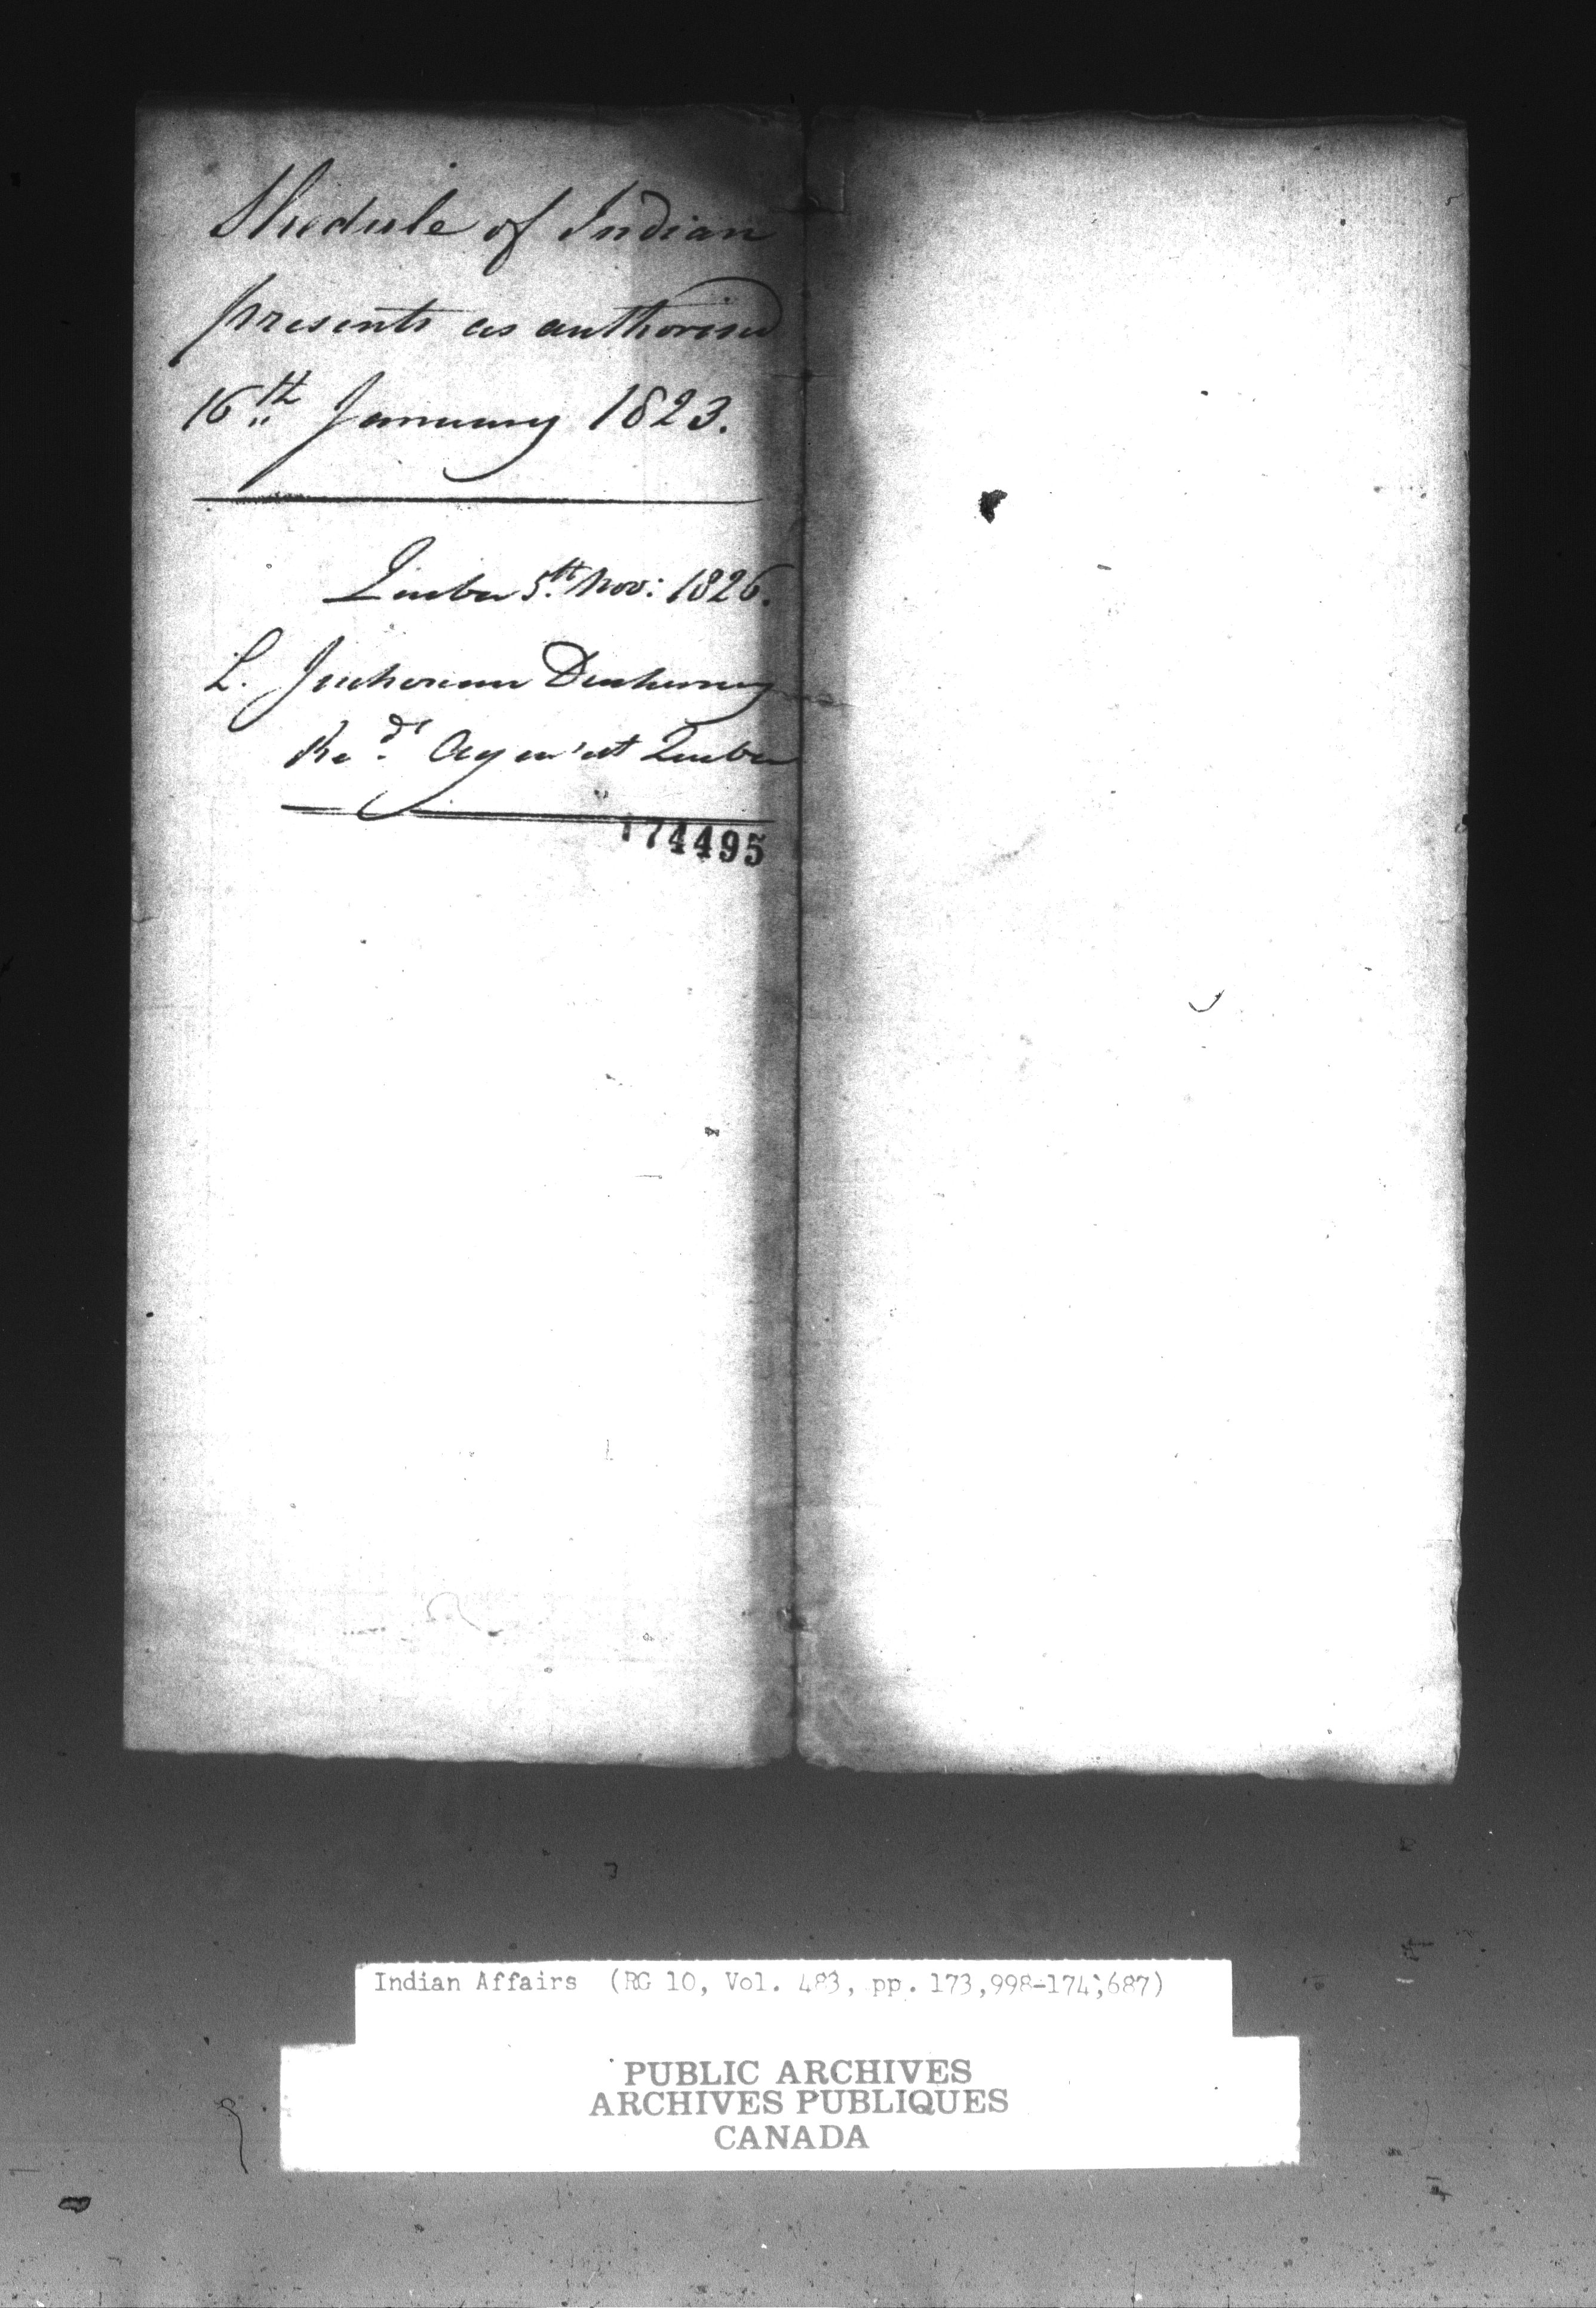 Shedule of Indian
presents as authorised
16th January 1823.
Quebec 5th Nov: 1826.
L. Juchereau Duchesnay
Agent Quebec
174495
Indian Affairs (RG 10, Vol. 483, pp. 173,998-174,687)
PUBLIC ARCHIVES
ARCHIVES PUBLIQUES
CANADA